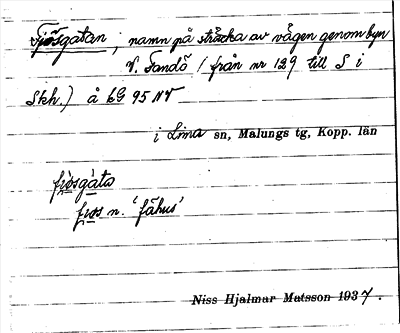 Fjösgatan, namn på sträcka av vägen genom byn
V. Fandö (från nr 129 till S i
Skh.) å bG 95 NV
i Lima sn, Malungs tg, Kopp. län
fjøsgàta
fjøs n. 'fähus'
Niss Hjalmar Matsson 1937.